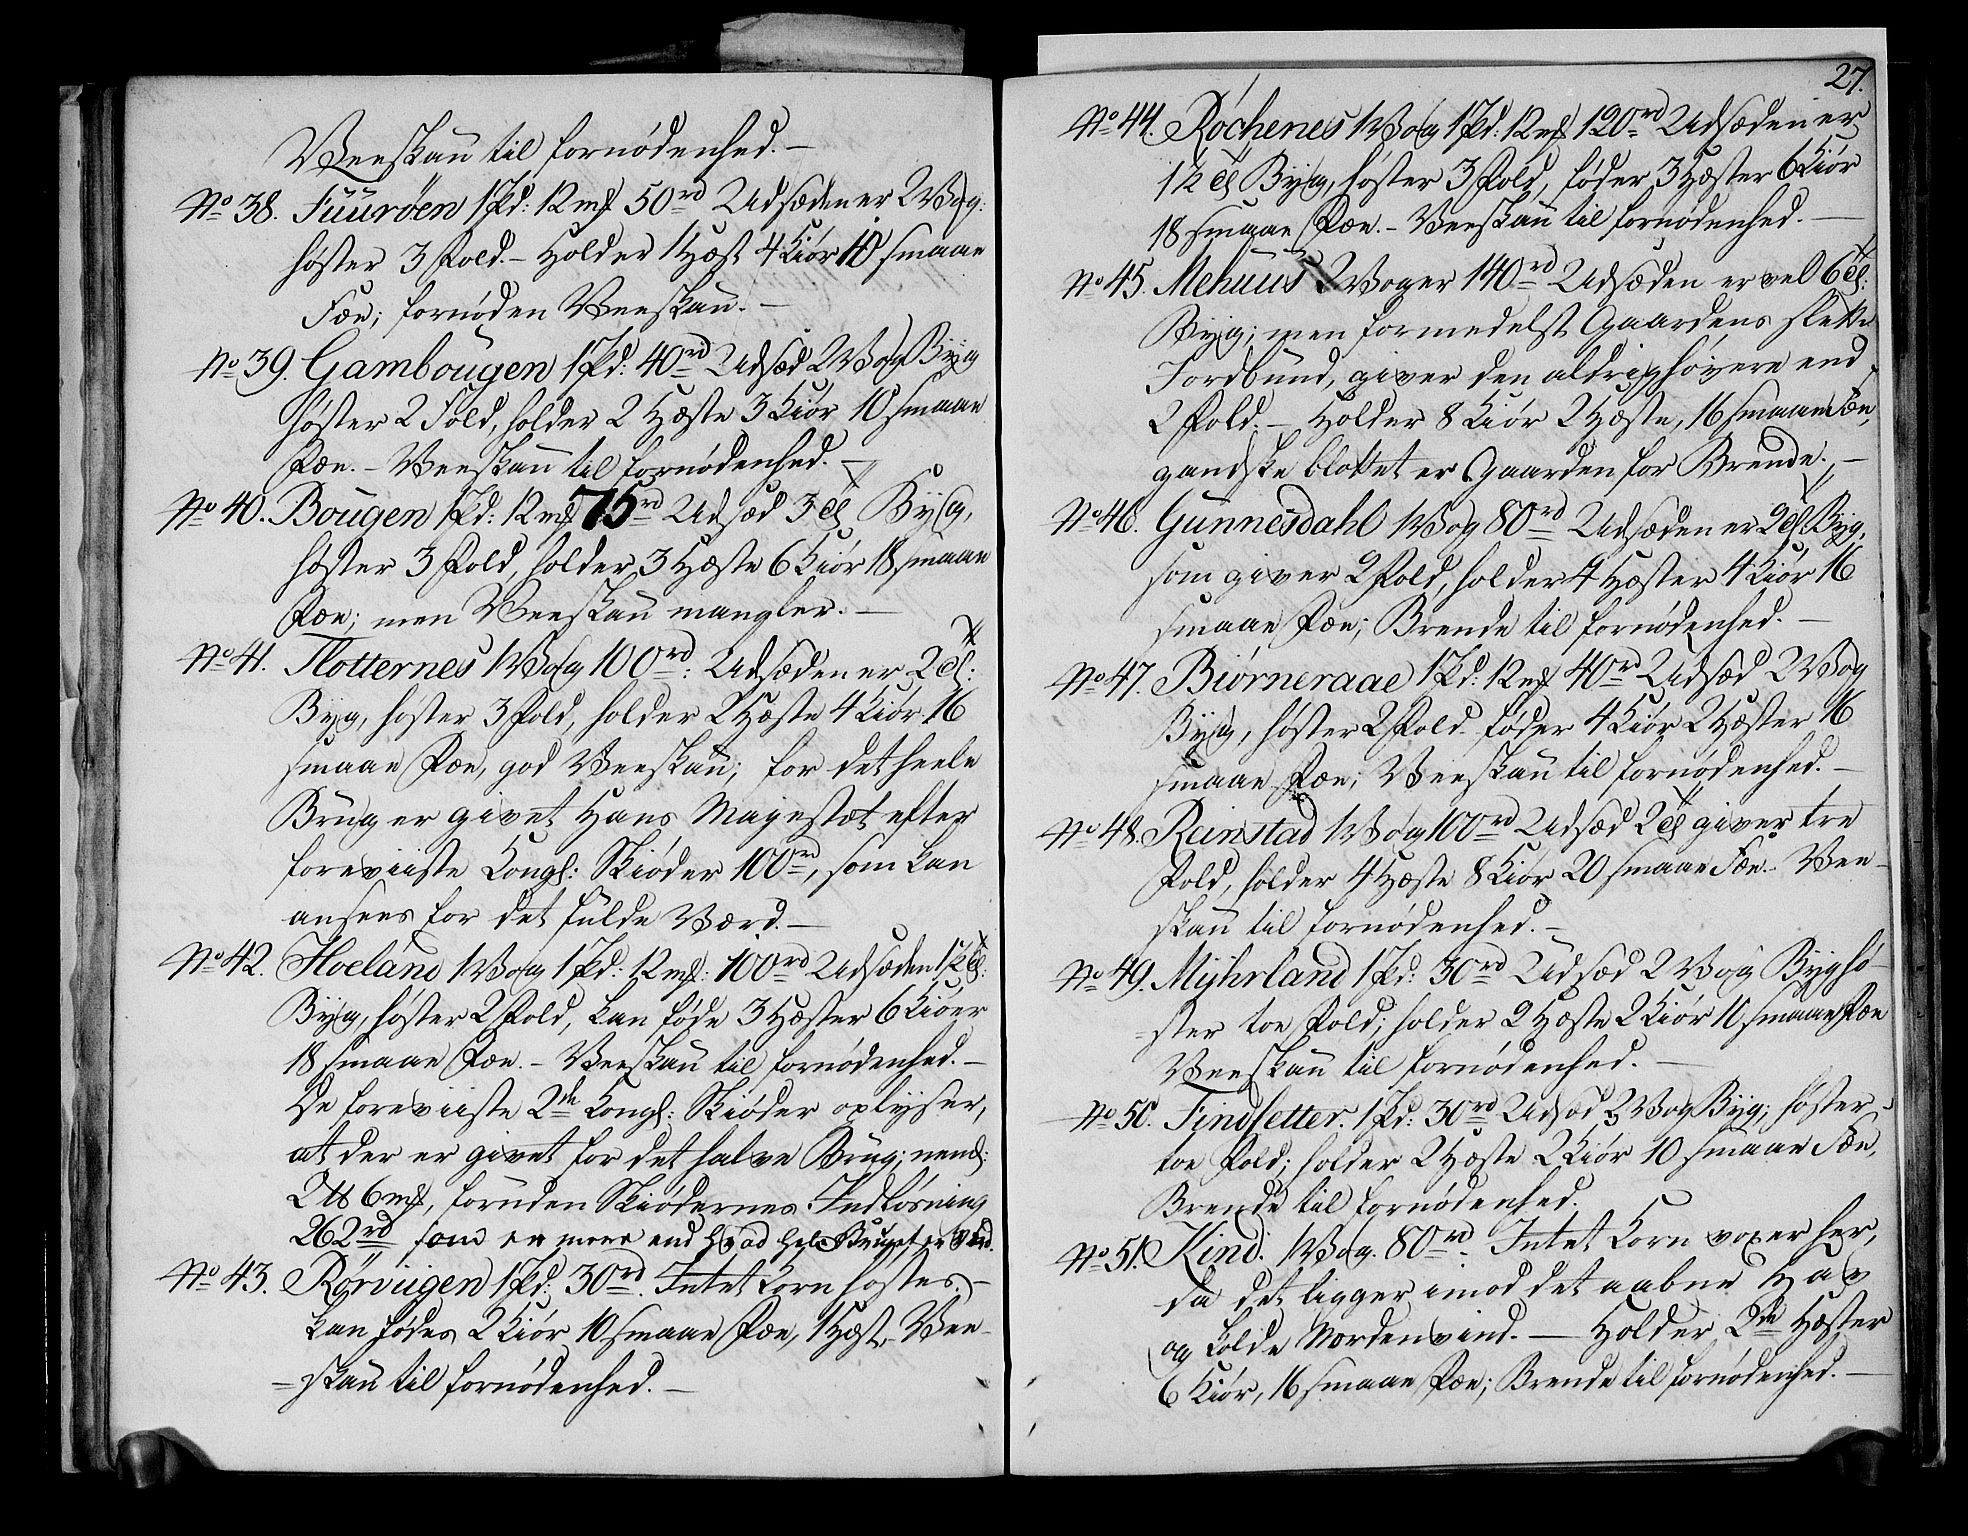 Veeskau til fornødenhed. –
No 38. Fuurøen 1 Pd: 12 mk 50rd Udsæden er 2 Vog:
høster 3 Fold. – Holder 1 Hæst 4 Kiør 10 smaae
Fæe; fornøden Veeskau. –
No 39. Gambougen 1 Pd: 40rd Udsæd 2 Vog Byg
høster 2 Fold, holder 2 Hæste 3 Kiør 10 smaae
Fæe. – Veeskau til fornødenhed. –
No 40. Bougen 1 Pd: 12 mk 75rd Udsæd 3 Tl Byg,
høster 3 Fold, holder 3 Hæste 6 Kiør 18 smaae
Fæe; men Veeskau mangler. –
No 41. Flotternes 1 Vog 100rd: Udsæden er 2 Tl:
Byg, høster 3 Fold, holder 2 Hæste 4 Kiør 16
smaae Fæe, god Veeskau; for det heele
Brug er givet Hans Majestæt efter
foreviiste Kongl: Skiøder 100rd, som kan
ansees for det fulde Værd. –
No 42. Hoeland 1 Vog 1 Pd: 12 mk: 100rd Udsæden 1 1/2 Tl:
Byg, høster 2 Fold, kan føde 3 Hæster 6 Kiøer
18 smaae Fæe. – Veeskau til fornødenhed. –
De foreviiste 2de Kongl: Skiøder oplyser,
at der er givet for det halve Brug; neml:
2 Pd 6 mk, foruden Skiødernes Indløsning
262rd som er mere end hvad hele Bruget er værd.
No 43. Rørviigen 1 Pd: 30rd. Intet Korn høstes. –
kan fødes 2 Kiør 10 smaae Fæe, 1 Hæst, Vee-
=skau til fornødenhed. –
27.
No 44. Rochenes 1 Vog 1 Pd: 12 mk 120rd Udsæden er
1 1/2 Tl Byg, høster 3 Fold, føder 3 Hæster 6 Kiør
18 smaae Fæe. – Veeskau til fornødenhed. –
No 45. Mehuus 2 Voger 140rd Udsæden er vel 6 Tl:
Byg; men formedelst Gaardens slette
Jordbund, giver den aldrig høyere end
2 Fold. – Holder 8 Kiør 2 Hæste, 16 smaae Fæe,
gandske blottet er Gaarden for Brende. –
No 46. Gunnesdahl 1 Vog 80rd Udsæden er 2 Tl: Byg,
som giver 2 Fold, holder 4 Hæster 4 Kiør 16
smaae Fæe; Brende til fornødenhed. –
No 47. Biørneraae 1 Pd: 12 mk 40rd Udsæd 2 Vog
Byg, høster 2 Fold føder 4 Kiør 2 Hæster 16
smaae Fæe; Veeskau til fornødenhed. –
No 48. Reinstad 1 Vog 100rd Udsæd 2 Tl giver tre
Fold, holder 4 Hæste 8 Kiør 20 smaae Fæe. Vee-
skau til fornødenhed. –
No 49. Myhrland 1 Pd: 30rd Udsæd 2 Vog Byg hø-
=ster toe Fold; holder 2 Hæste 2 Kiør 10 smaae Fæe
Veeskau til fornødenhed. –
No 50. Findsetter. 1 Pd: 30rd Udsæd 2 Vog Byg, høster
toe Fold; holder 2 Hæste 2 Kiør 10 smaae Fæe,
Brende til fornødenhed.
No 51. Kind: 1 Vog. 80rd. Intet Korn voxer her,
da det ligger imod det aabne Hav
og kolde Nordenvind. – Holder 2de Hæster
6 Kiør, 16 smaae Fæe; Brende til fornødenhed. –